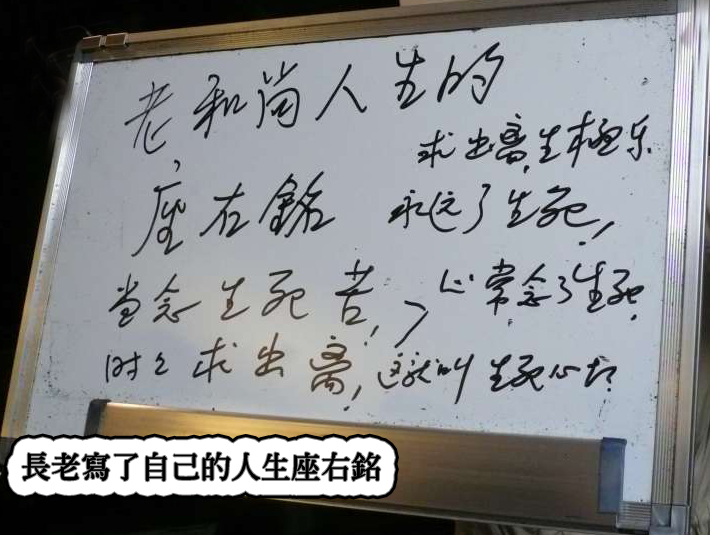 老和尚人生的
求出离,生极乐
座右銘
永远了生死,
当念生死苦,
心常念了生死,
时时求出离,
这就叫生死心切
長老寫了自己的人生座右銘